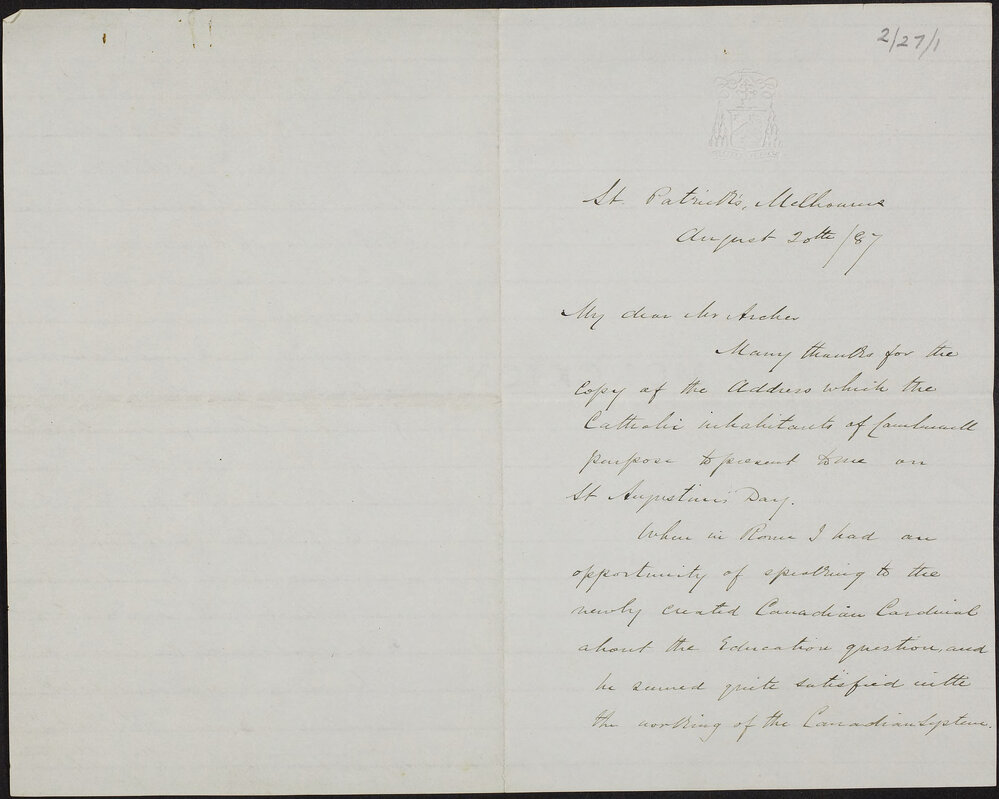 2/27/1
St. Patrick's, Melbourne
August 20th /87
My dear Mr Archer
Many thanks for the
Copy of the Address which the
Catholic inhabitants of Camberwell
purpose to present to me on
St Augustine's Day.
When in Rome I had an
opportunity of speaking to the
newly created Canadian Cardinal
about the Education question, and
he seemed quite satisfied with
the working of the Canadian System.